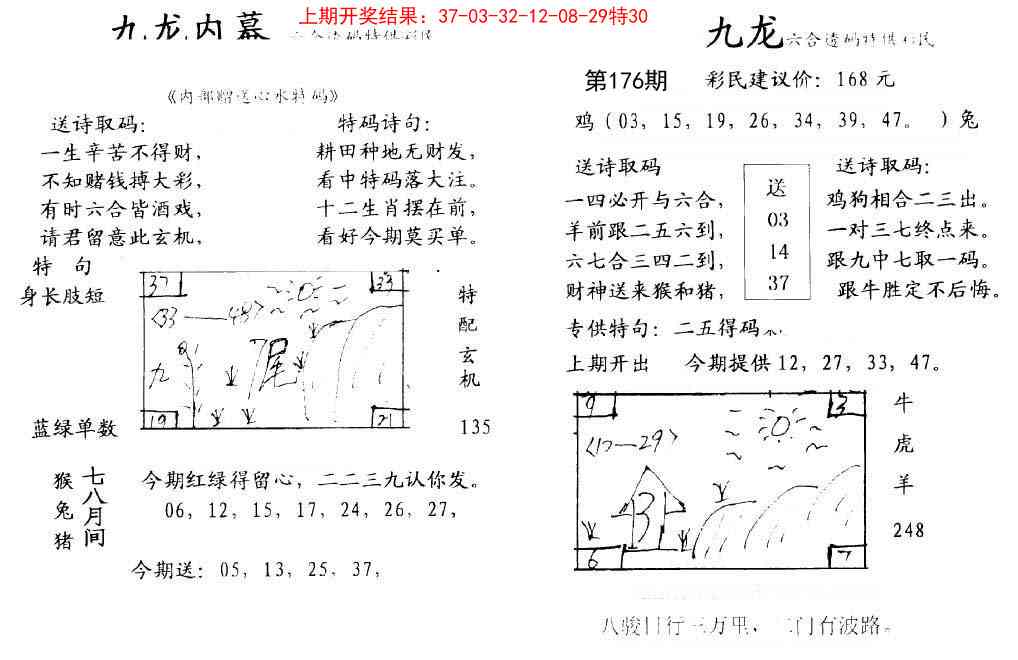 上期开奖结果：37-03-32-12-08-29特30
九.龙.内幕
六合透码特供彩民
《内部赠送心水特码》
送诗取码：
一生辛苦不得财，
不知赌钱搏大彩，
有时六合皆酒戏，
请君留意此玄机，
特码诗句：
耕田种地无财发，
看中特码落大注。
十二生肖摆在前，
看好今期莫买单。
特 句
身长肢短
蓝绿单数
37
33
〈33——48〉
九
尾
19
21
特
配
玄
机
135
猴
兔
猪
七
八
月
间
今期红绿得留心，二二三九认你发。
06，12，15，17，24，26，27，
今期送：05，13，25，37，
九龙
六合透码特供彩民
第176期 彩民建议价：168元
鸡（03，15，19，26，34，39，47。 ）兔
送诗取码
一四必开与六合，
羊前跟二五六到，
六七合三四二到，
财神送来猴和猪，
送
03
14
37
送诗取码：
鸡狗相合二三出。
一对三七终点来。
跟九中七取一码。
跟牛胜定不后悔。
专供特句：二五得码
上期开出 今期提供12，27，33，47。
9
3
〈17—29〉
6
7
牛
虎
羊
248
八骏日行三万里、二门有波路。